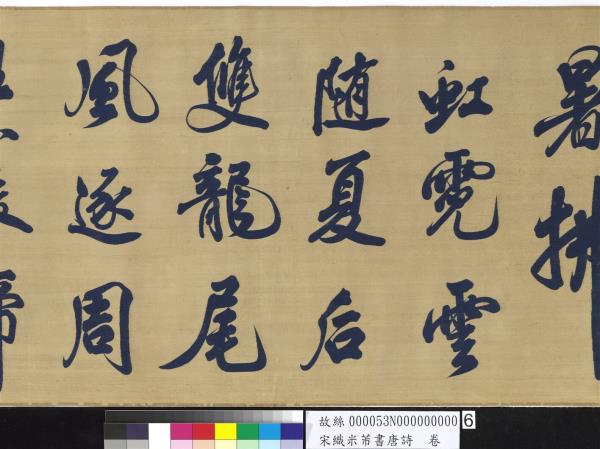 暑拂
虹霓雲
随夏后
雙龍尾
風逐周
故絲 000053N000000000 6
宋織米芾書唐詩 卷